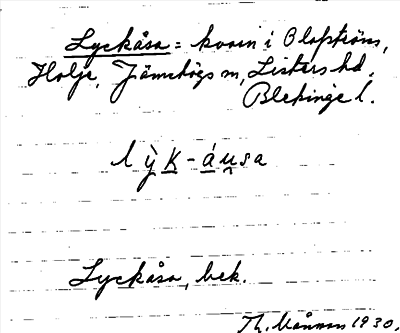 Lyckåsa = kvarn i Olofström,
Holje, Jämshögs sn, Listers hd.
Blekinge l.
l ỳ k - á u s a
Lyckåsa, bek.
Th. 1930.